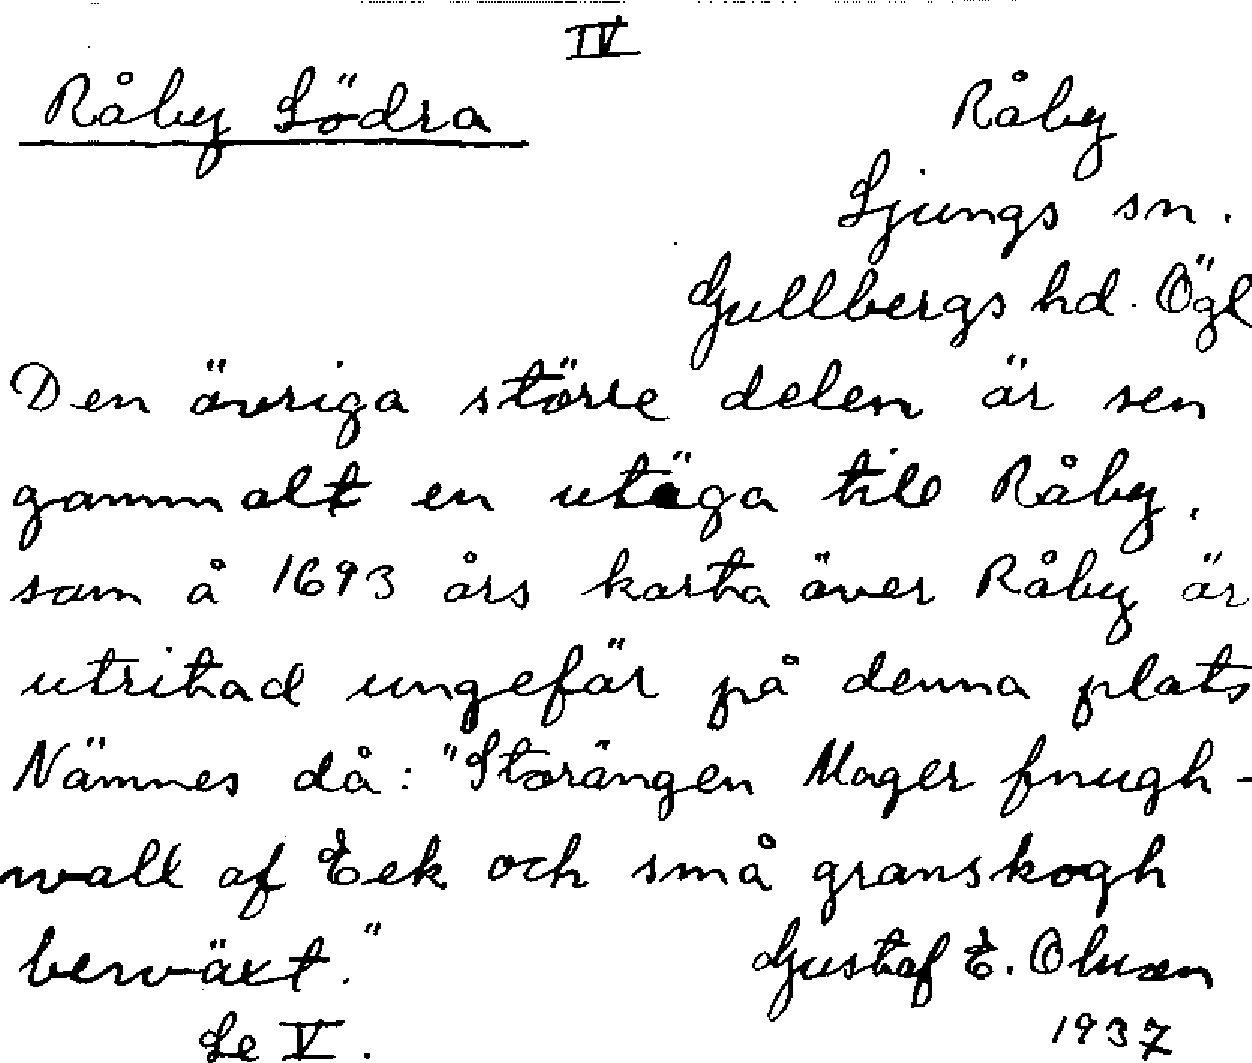 IV
Råby Södra Råby
Ljungs sn.
Gullbergs hd. Ögl
Den övriga större delen är sen
gammalt en utäga till Råby,
som å 1693 års karta över Råby är
utritad ungefär på denna plats
Nämnes då: "Storängen Mager fnugh-
wall af Eek och små granskogh
berwäxt."
Gustaf E. Olsson
Se V. 1937